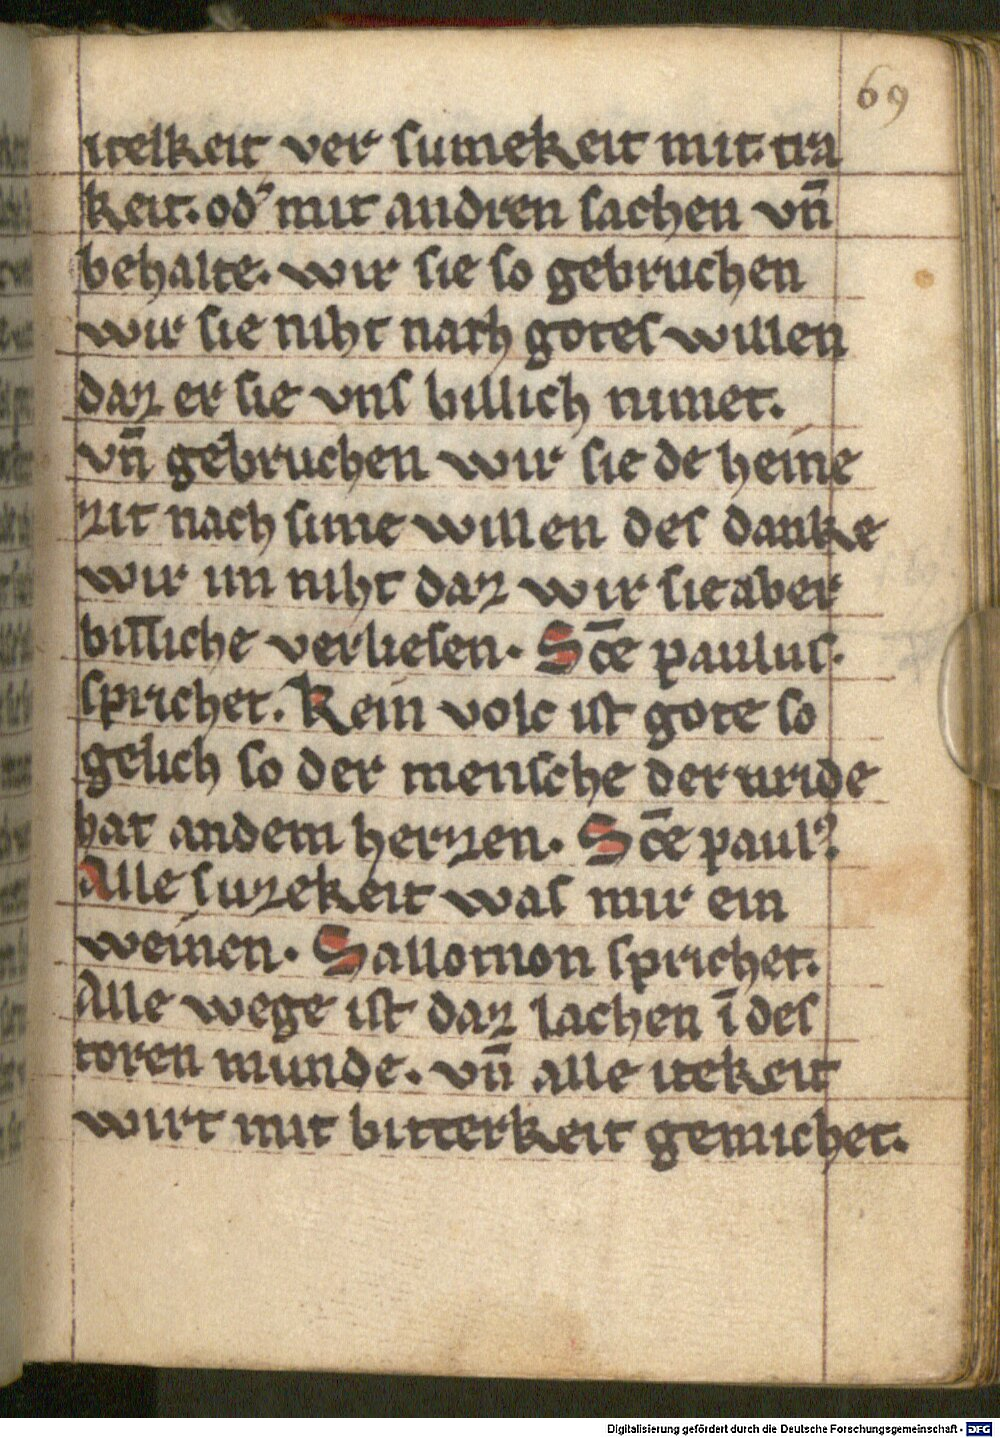 69
itelkeit ver sumekeit mit tra
keit. od' mit andren sachen vn̄
behalte. wir sie so gebruchen
wir sie niht nach gotes willen
daz er sie vns billich nimet.
vn̄ gebruchen wir sie de heine
zit nach sime willen des danke
wir im niht daz wir sie aber
billiche verliesen. Sc̄e paulus.
sprichet. Kein volc ist gote so
gelich so der mensche der vride
hat an dem herzen. Sc̄e paul'
Alle suzekeit was mir ein
weinen. Sallomon sprichet.
Alle wege ist daz lachen ī des
toren munde. vn̄ alle itekeit
wirt mit bitterkeit gemichet.
Digitalisierung gefördert durch die Deutsche Forschungsgemeinschaft - DFG